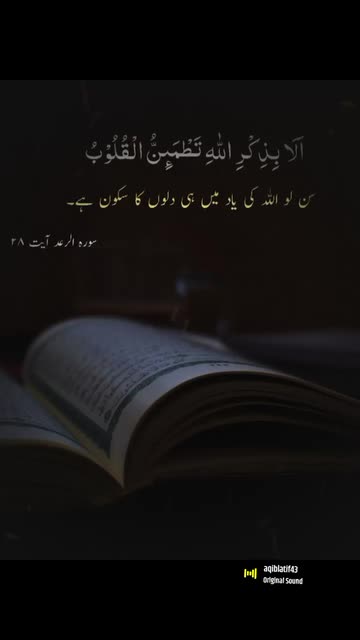 اَلَا بِذِكْرِ اللّٰهِ تَطْمَىِٕنُّ الْقُلُوْبُ
سن لو اللہ کی یاد میں ہی دلوں کا سکون ہے۔
سورہ الرعد آیت ۲۸
aqiblatif43
Original Sound